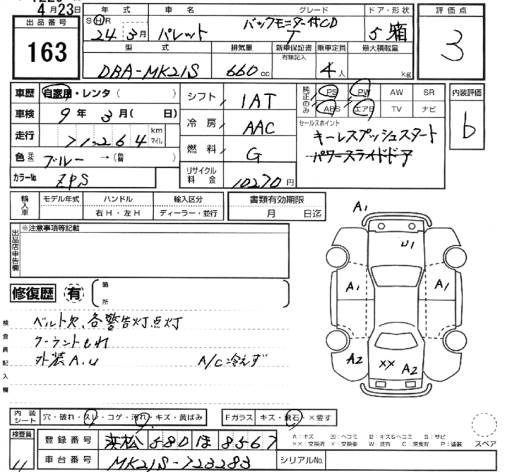 4月23日
出品番号
163
年式 車名 グレード ドア・形状
S H 24年 3月 パレット バックモニター付CD T 5 箱
評価点
3
型式 排気量 新車保証書 有無記入 乗車定員 最大積載量
DBA-MK21S 660cc 4人 kg
車歴 自家用・レンタ( )
車検 9年 3月( 日)
走行 71,264 km マイル
色 ブルー →( 替)
カラーNo. ZPS
シフト 1AT
冷房 AAC
燃料 G
リサイクル料金 10270円
純正のみ
PS PW AW SR
ABS エアB TV ナビ
セールスポイント
キーレスプッシュスタート
パワースライドドア
内装評価
b
輸入車 モデル年式 ハンドル 輸入区分
右H・左H ディーラー・並行
書類有効期限
月 日迄
出品店申告欄
※注意事項等記載
修復歴 有
箇所
検査員記入欄
ベルトX、各警告灯点灯
クーラントもれ
外装A.U A/C冷えず
A1
U1
A1 A1
A2 XX A2
内装シート 穴・破れ・スレ・コゲ・汚れ・キズ・黄ばみ
Fガラス キズ・飛石・X要す
スペア
検査員
登録番号 浜松 580 ほ 8567
車台番号 MK21S-723283
シリアルNo.